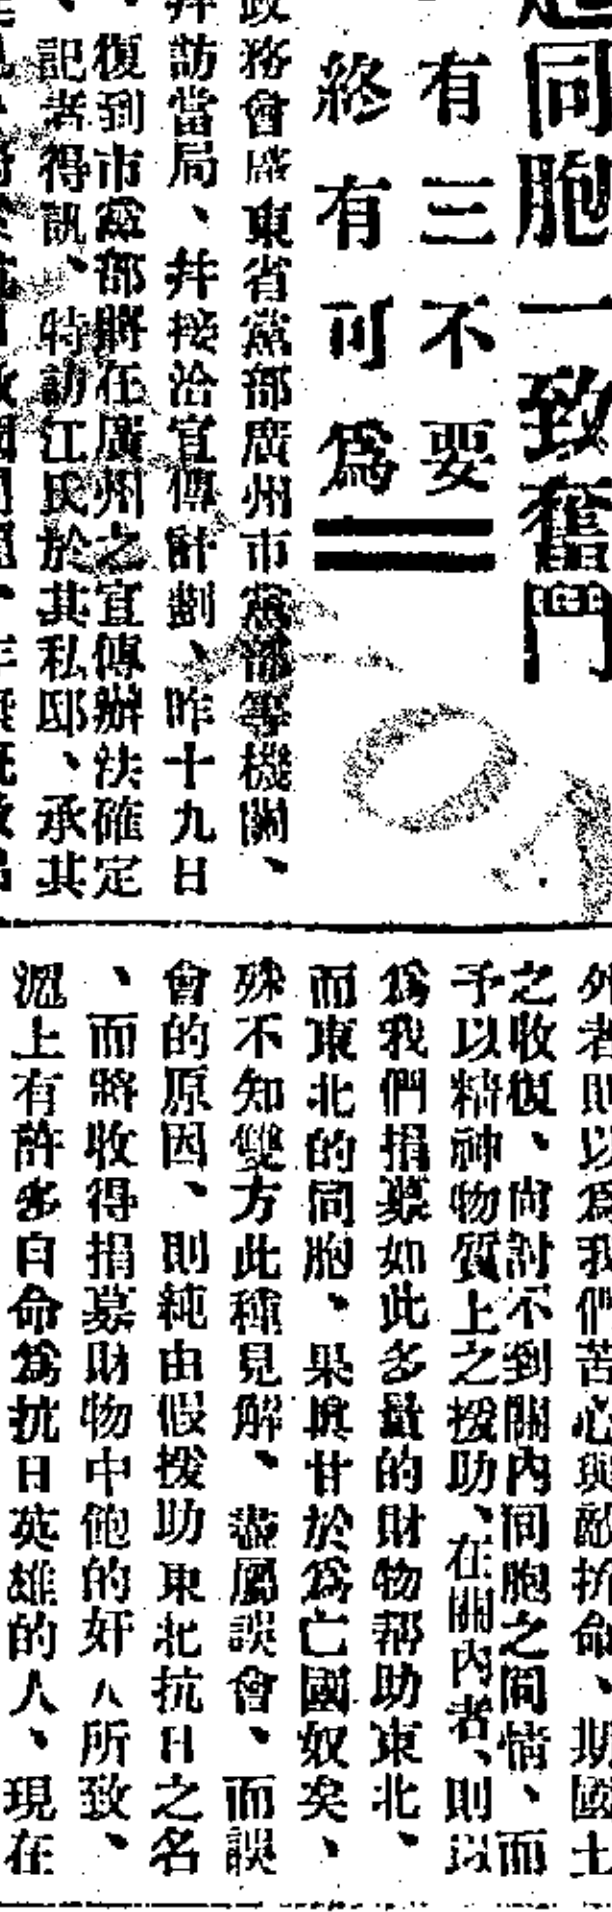 同胞一致奮鬥
有三不要
終有可爲
政務會 東省黨部廣州市黨部等機關、
拜訪當局、幷接洽宣傳計劃、昨十九日
、復到市黨部將在廣州之宣傳辦法確定
、記者得訊、特訪江氏於其私邸、承其
外者則以爲我們苦心與敵抗命、期國土
之收復、尙討不到關內同胞之同情、而
予以精神物質上之援助、在關內者、則以
爲我們捐募如此多量的財物帮助東北、
而東北的同胞、果眞甘於爲亡國奴矣、
殊不知雙方此種見解、盡屬誤會、而誤
會的原因、則純由假援助東北抗日之名
、而將收得捐募財物中飽的奸人所致、
滬上有許多自命爲抗日英雄的人、現在